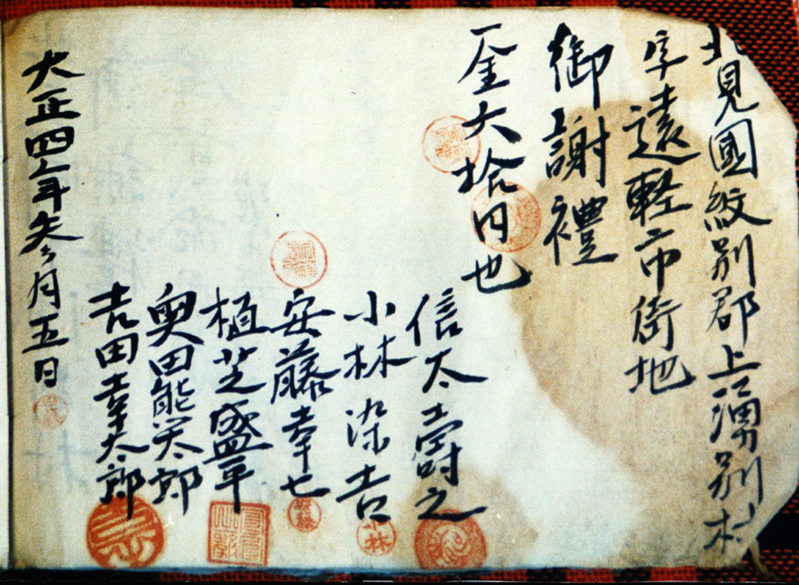 北見國紋別郡上湧別村
字遠軽市街地
御謝禮
一金六拾円也
信太壽之
小林染吉
安藤幸七
植芝盛平
奥田能太郎
吉田幸太郎
大正四年参月五日
小林
安藤